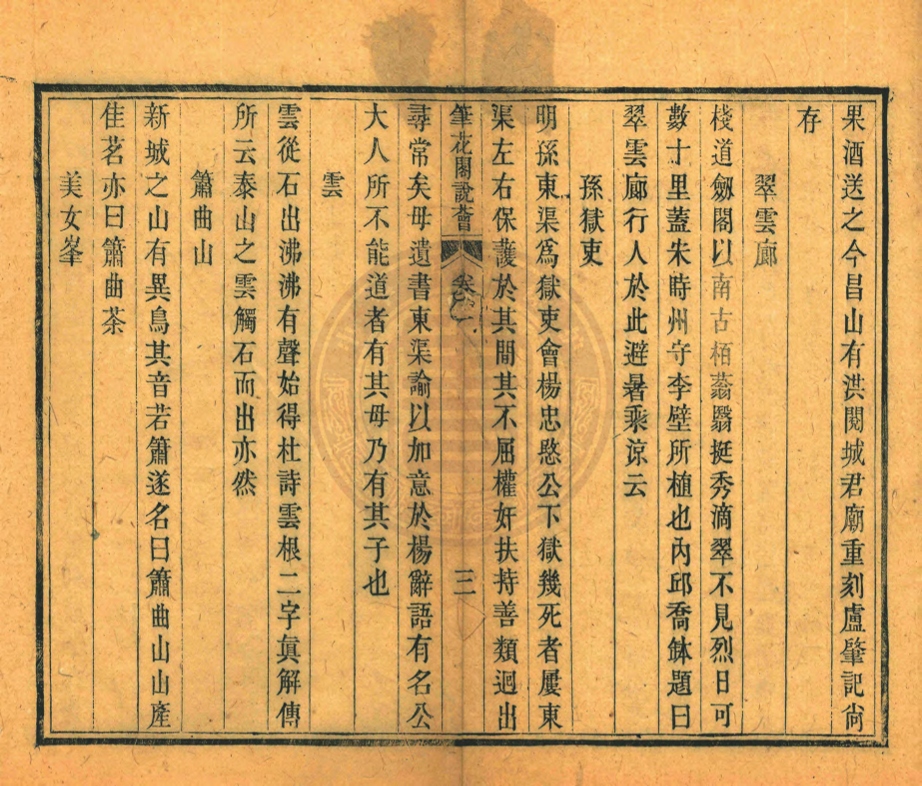 果酒送之今昌山有洪閱城君廟重刻盧肇記尙
存
翠雲廊
棧道劔閣以南古栢蓊翳挺秀滴翠不見烈日可
數十里蓋朱時州守李壁所植也內邱喬鉢題曰
翠雲廊行人於此避暑乘涼云
孫獄吏
明孫東渠爲獄吏會楊忠愍公下獄幾死者屢東
渠左右保護於其間其不屈權奸扶持善類迥出
筆花閣說薈 卷一 三
尋常矣母遺書東渠諭以加意於楊辭語有名公
大人所不能道者有其母乃有其子也
雲
雲從石出沸沸有聲始得杜詩雲根二字眞解傳
所云泰山之雲觸石而出亦然
簫曲山
新城之山有異鳥其音若簫遂名曰簫曲山山產
佳茗亦曰簫曲茶
美女峯